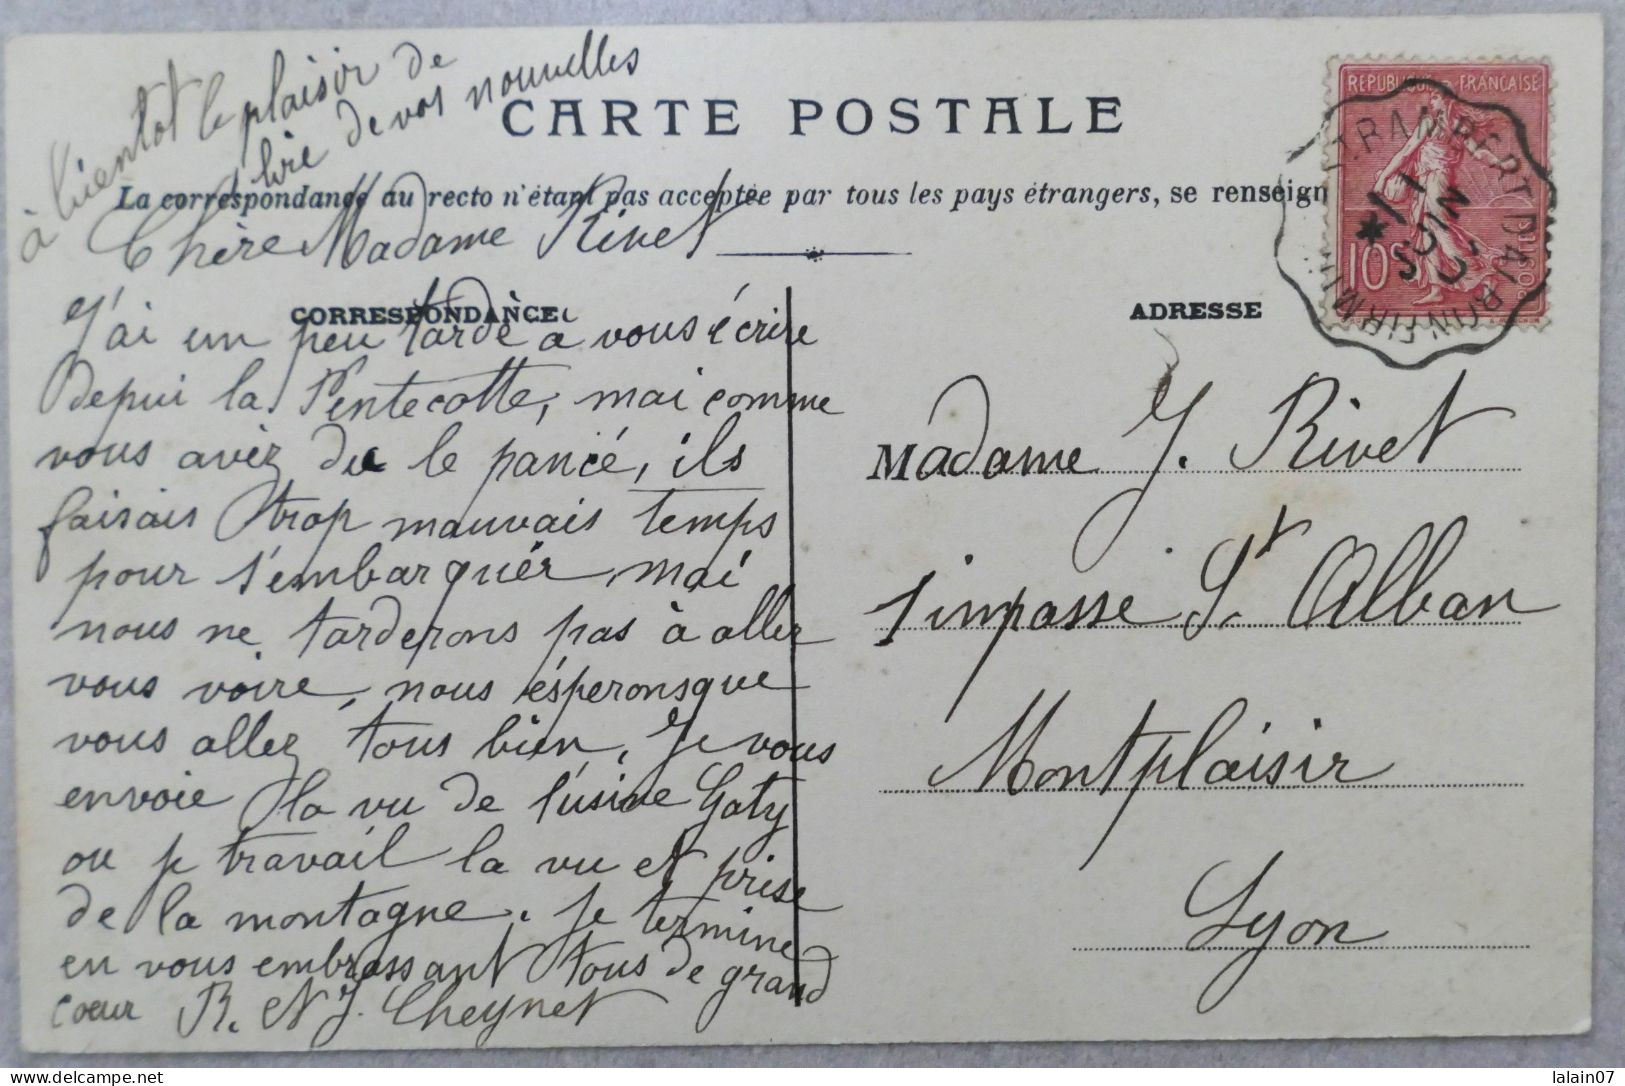 à bientot le plaisir de
lire de vos nouvelles
CARTE POSTALE
La correspondance au recto n'étant pas acceptée par tous les pays étrangers, se renseign
Chère Madame Rivet
CORRESPONDANCE
J'ai un peu tardé a vous écrire
Depui la Pentecotte, mai comme
vous aviez du le pancé, ils
faisais trop mauvais temps
pour s'embarquér, mai
nous ne tarderons pas à aller
vous voire, nous ésperonsque
vous allez tous bien, Je vous
envoie la vu de l'usine Gaty
ou je travail la vu et prise
de la montagne. Je termine
en vous embrassant tous de grand
coeur R. et J. Cheynet
ADRESSE
Madame J. Rivet
1 impasse St Alban
Montplaisir
Lyon
REPUBLIQUE FRANÇAISE
10c
POSTES
ST RAMBERT D'AL
FIRMINY
11
JUIN
lalain07